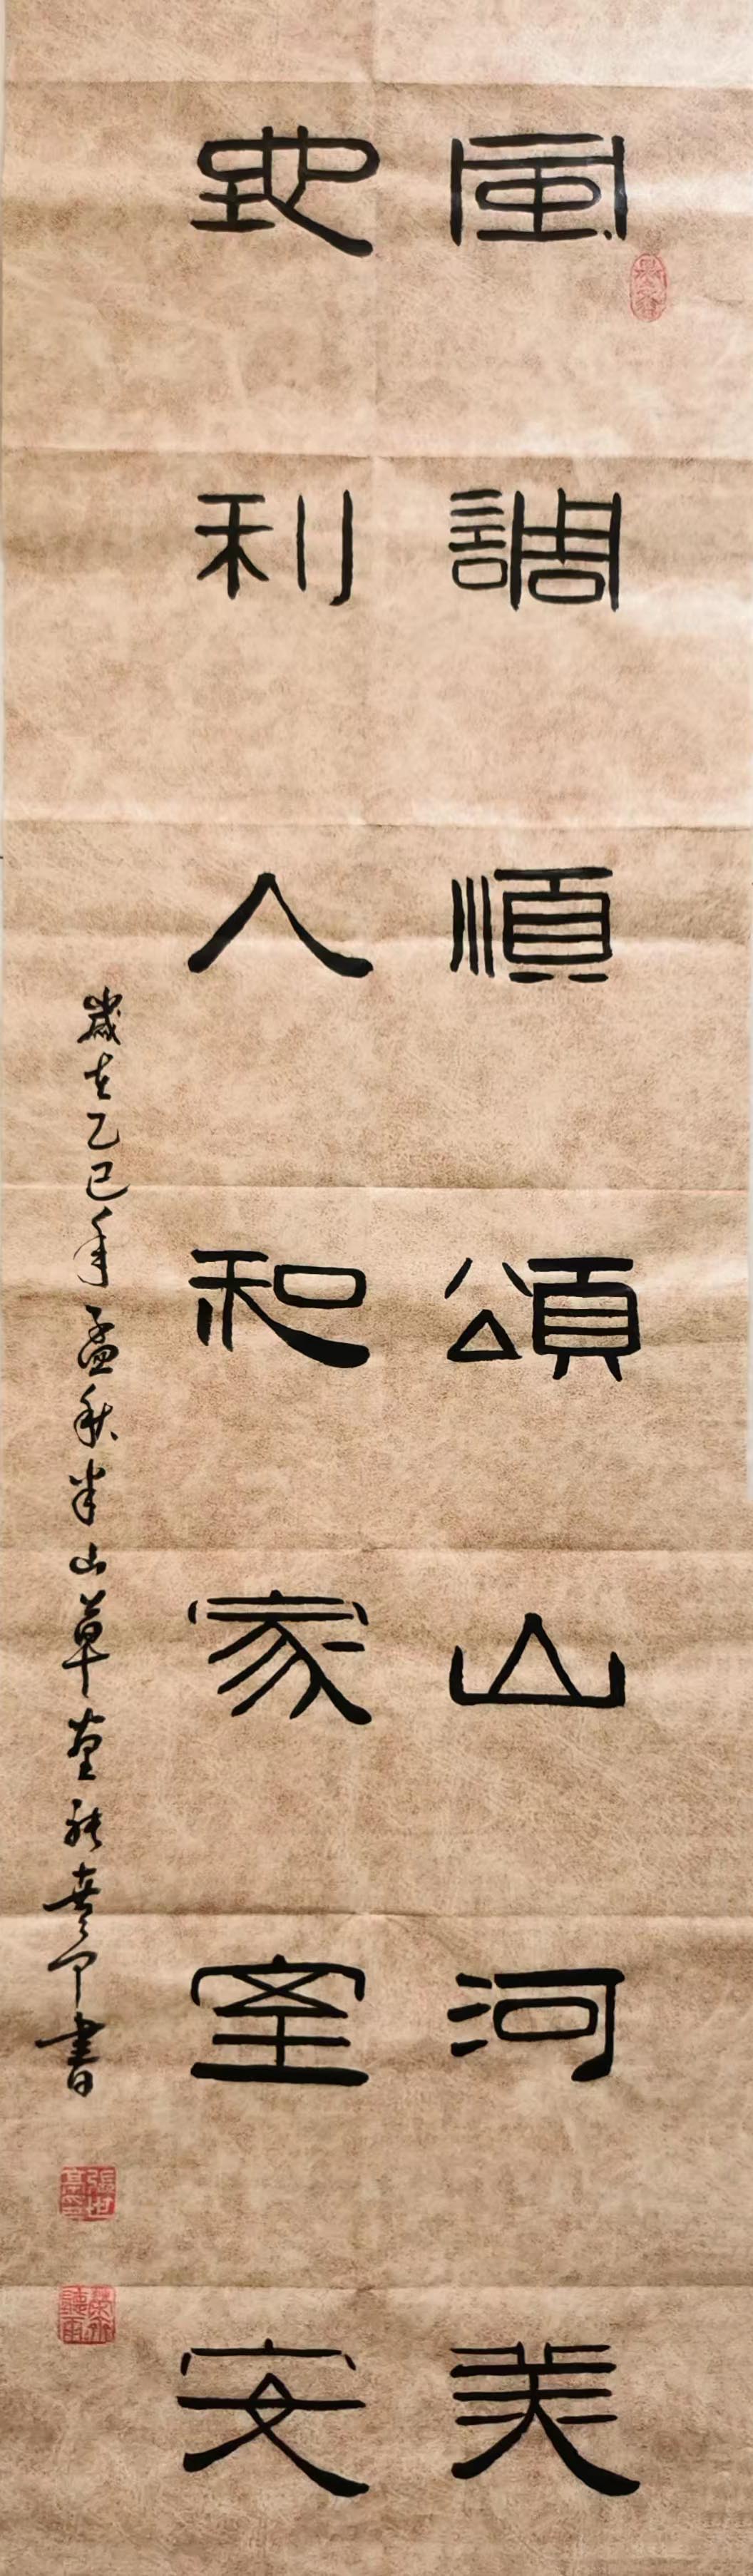 風調順頌山河美
地利人和家室安
歲在乙巳年孟秋半山草堂張世亭書
張世亭印